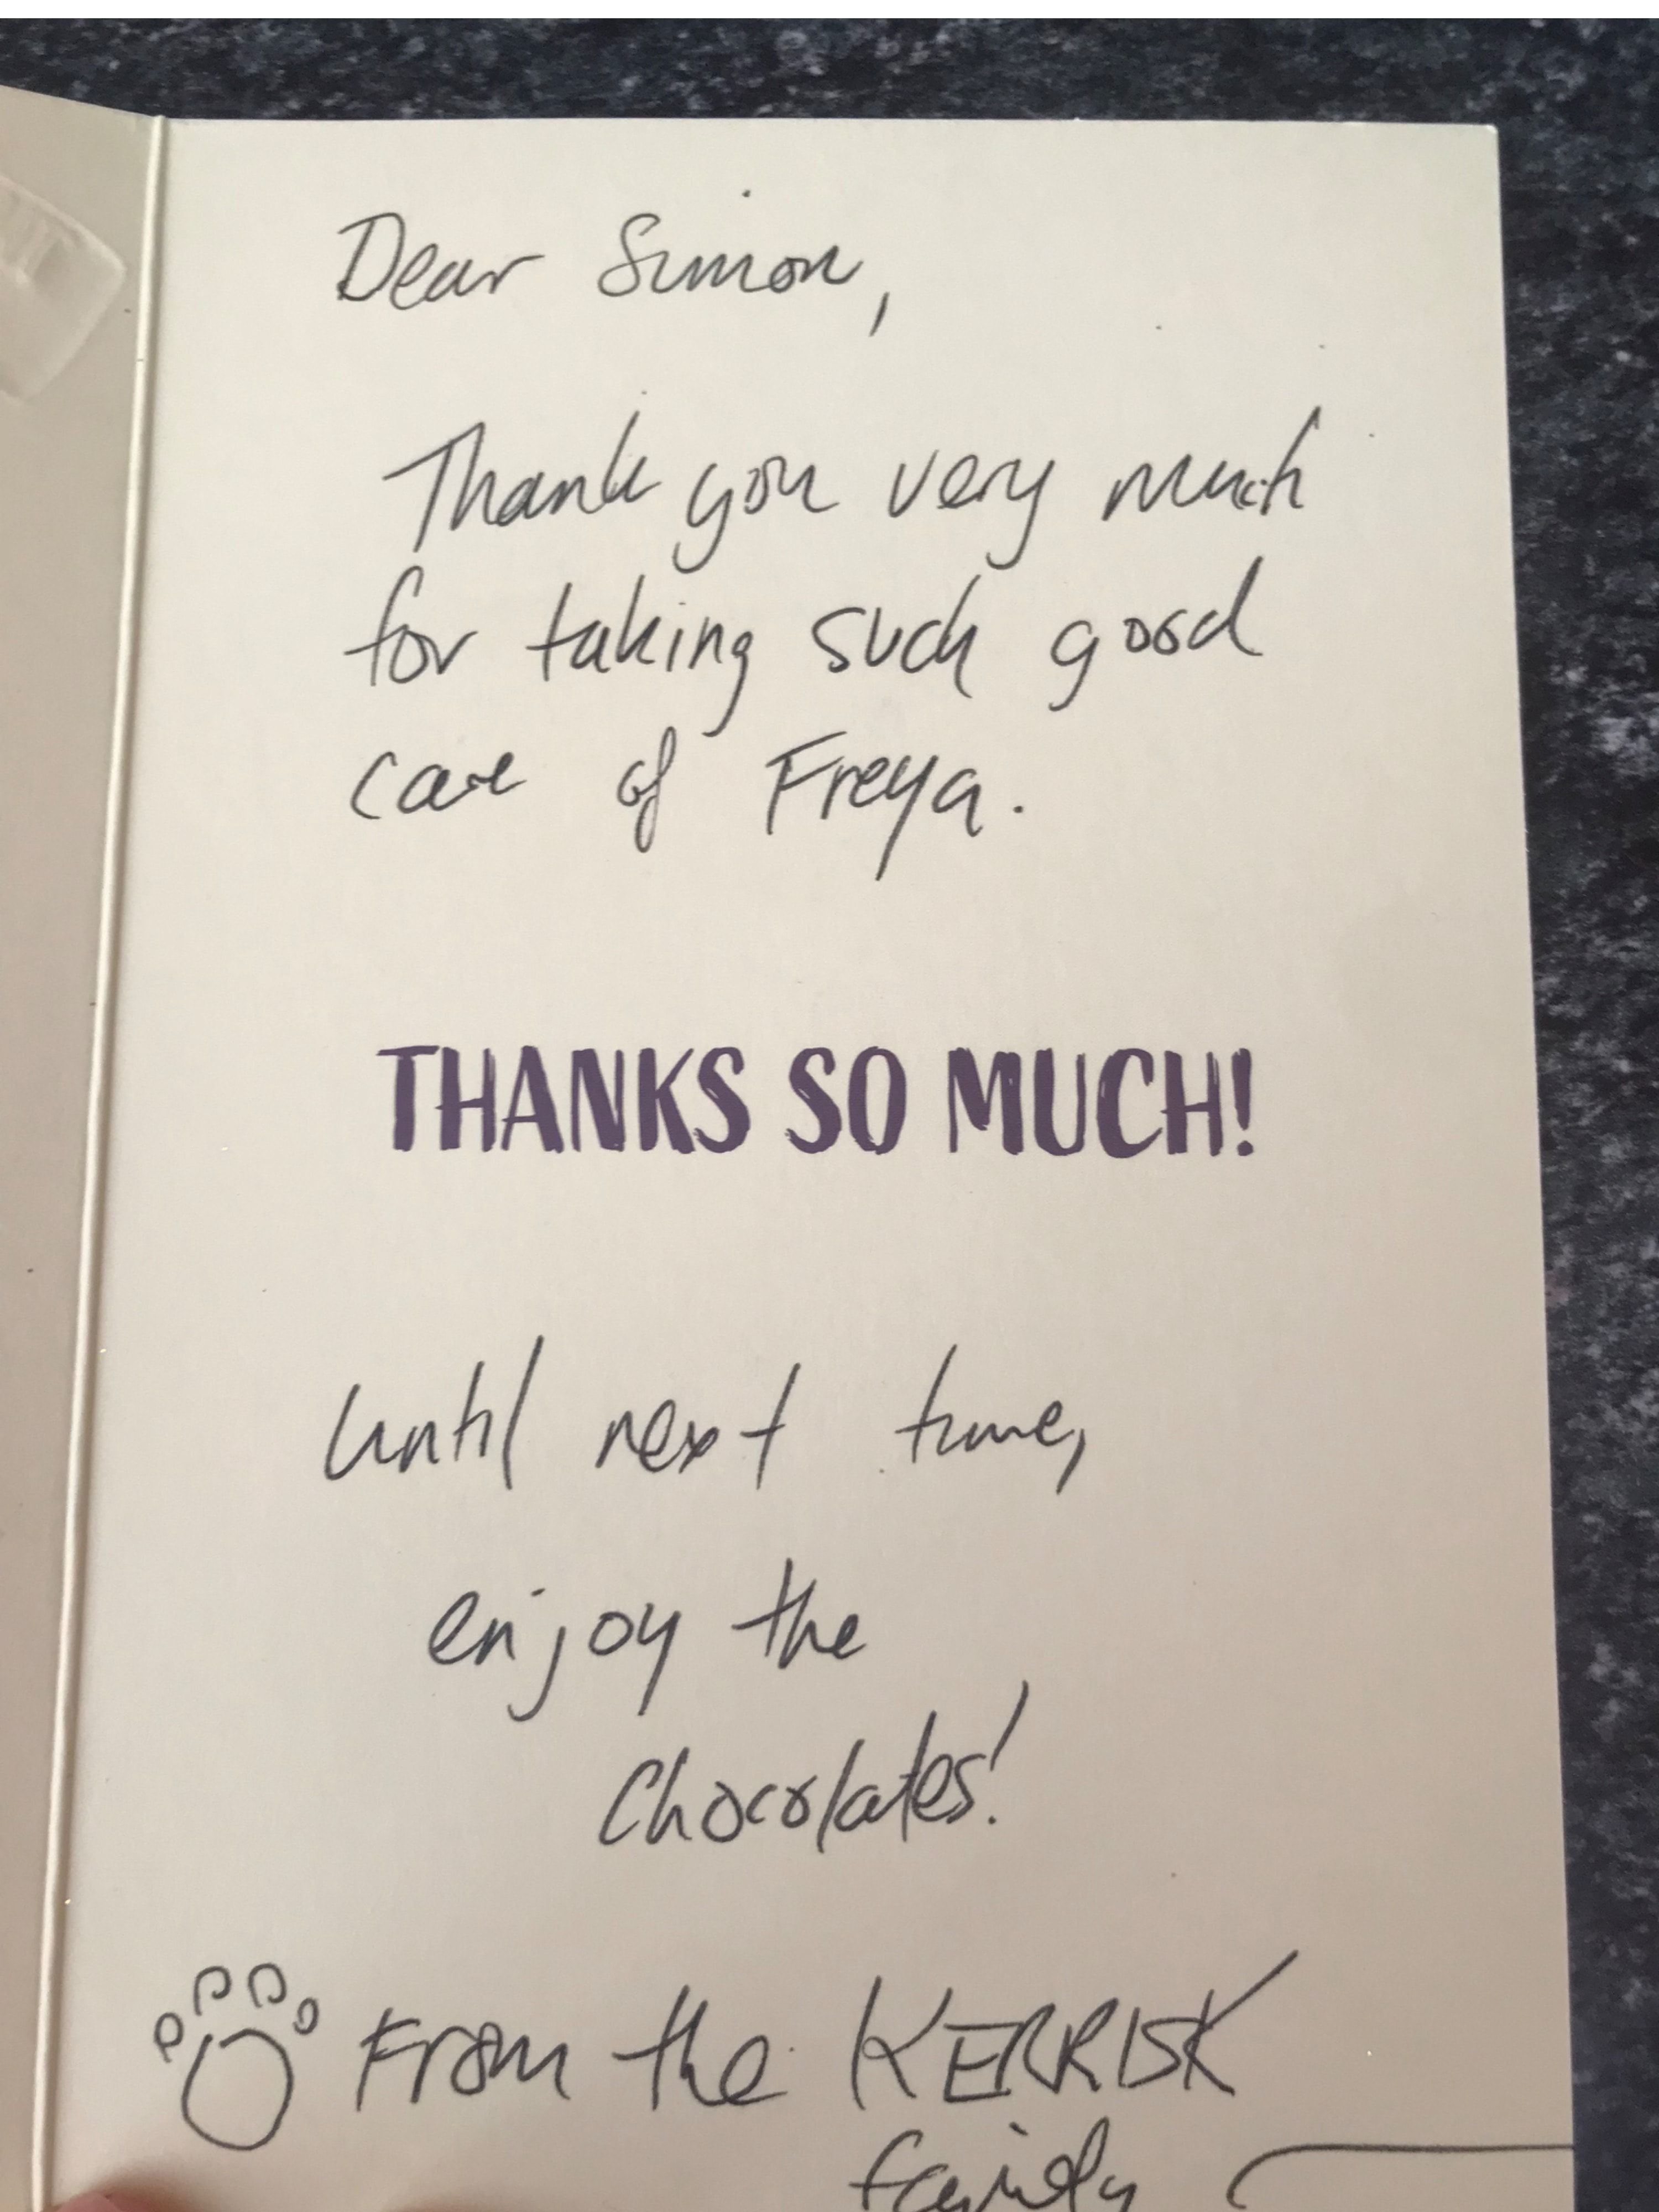 Dear Simon,
Thank you very much
for taking such good
care of Freya.
THANKS SO MUCH!
Until next time,
enjoy the
Chocolates!
From the KERRISK
family